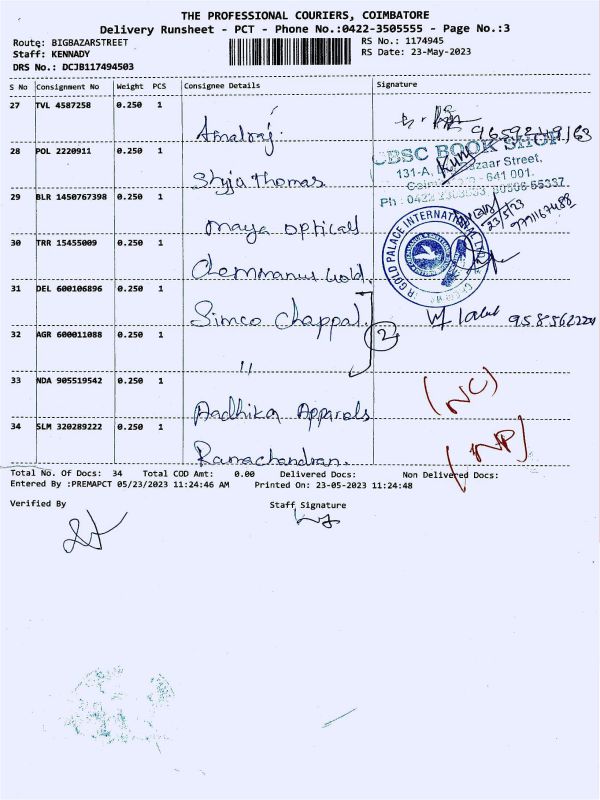 THE PROFESSIONAL COURIERS, COIMBATORE
Delivery Runsheet - PCT - Phone No.:0422-3505555 - Page No.:3
Route: BIGBAZARSTREET
RS No.: 1174945
Staff: KENNADY
RS Date: 23-May-2023
DRS No.: DCJB117494503
S No Consignment No Weight PCS Consignee Details Signature
27 TVL 4587258 0.250 1
Amalraj.
9659249163
28 POL 2220911 0.250 1
CBSC BOOK SHOP
131-A, Bazaar Street,
641 001.
Thomas
29 BLR 1450767398 0.250 1
Maya opticals
23/5/23
30 TRR 15455009 0.250 1
GOLD PALACE INTERNATIONAL
Chemmanur Gold.
31 DEL 600106896 0.250 1
Simco Chappal.
2
32 AGR 600011088 0.250 1
"
33 NDA 905519542 0.250 1
(NC)
Aadhika Apparals
34 SLM 320289222 0.250 1
(NP)
Ramachandran.
Total No. Of Docs: 34 Total COD Amt: 0.00 Delivered Docs: Non Delivered Docs:
Entered By :PREMAPCT 05/23/2023 11:24:46 AM Printed On: 23-05-2023 11:24:48
Verified By Staff Signature